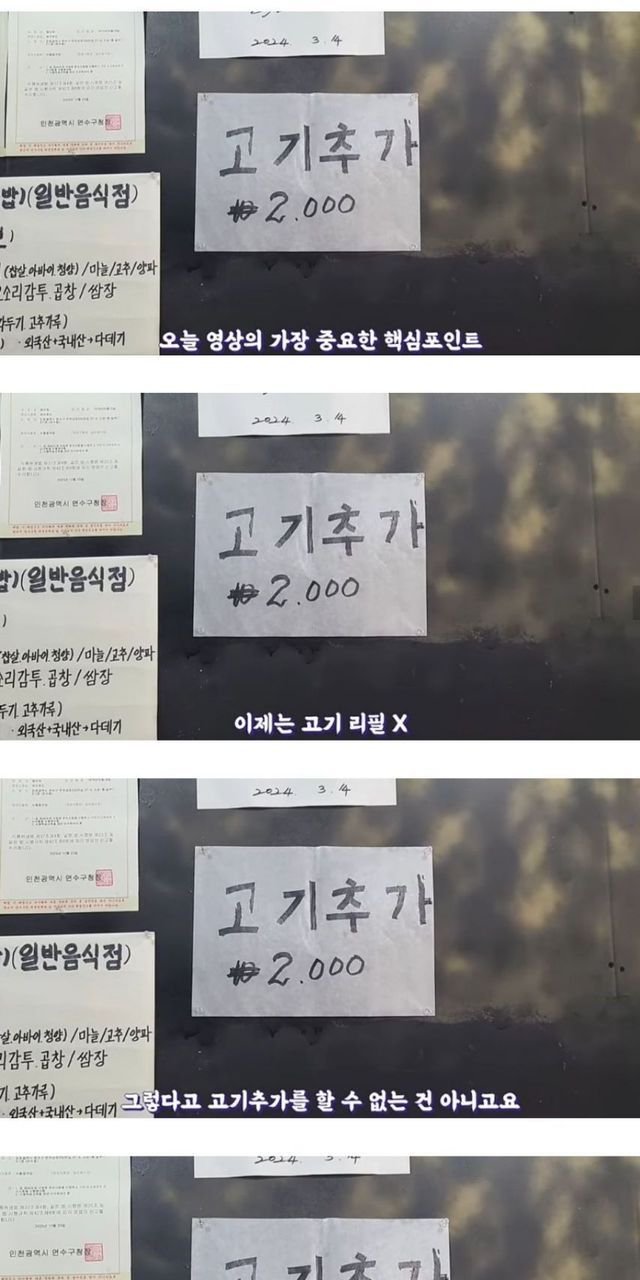 2024. 3. 14
고기추가
₩ 2.000
인천광역시 연수구청장
밥)(일반음식점)
(찹쌀.아바이.청양)/마늘/고추/양파
오소리감투.곱창/쌈장
깍두기.고추가루)
외국산+국내산→다데기
오늘 영상의 가장 중요한 핵심포인트
2024. 3. 14
고기추가
₩ 2.000
인천광역시 연수구청장
밥)(일반음식점)
찹쌀.아바이.청양)/마늘/고추/양파
소리감투.곱창/쌈장
두기.고추가루)
외국산+국내산→다데기
이제는 고기 리필 X
2024. 3. 14
고기추가
₩ 2.000
인천광역시 연수구청장
)(일반음식점)
쌀.아바이.청양)/마늘/고추/양파
리감투.곱창/쌈장
기.고추가루)
외국산+국내산→다데기
그렇다고 고기추가를 할 수 없는 건 아니고요
2024. 3. 14
인천광역시 연수구청장
고기추가